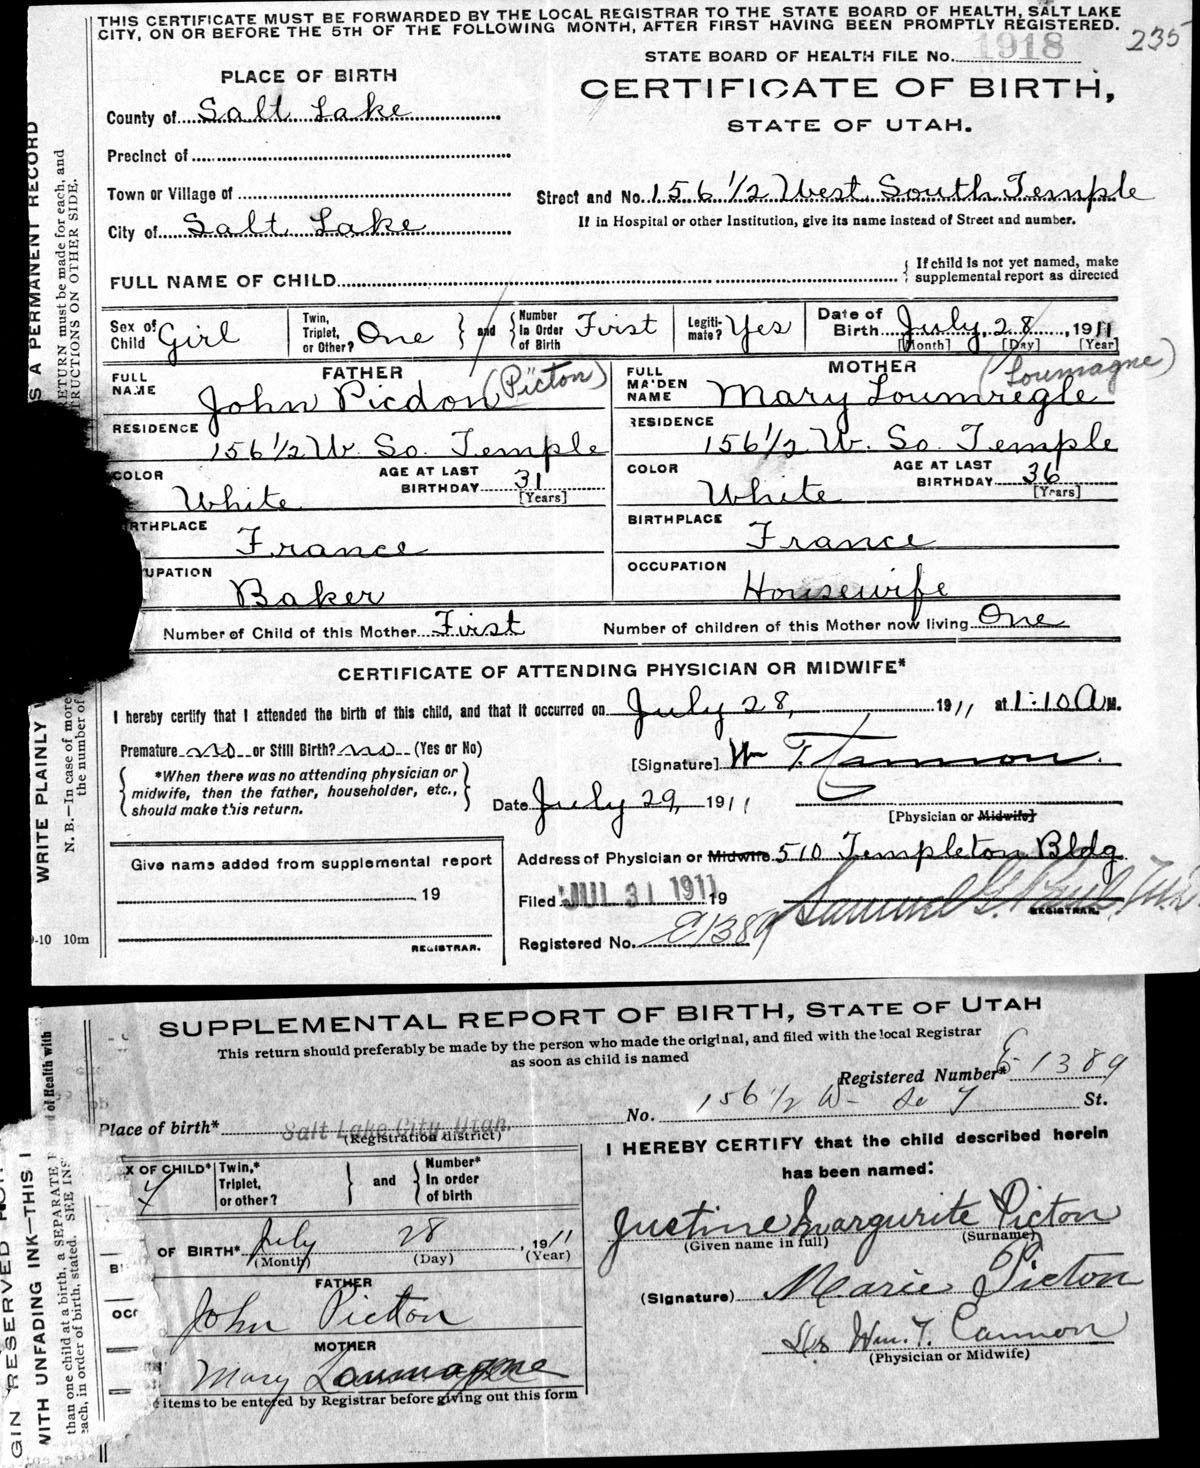 THIS CERTIFICATE MUST BE FORWARDED BY THE LOCAL REGISTRAR TO THE STATE BOARD OF HEALTH, SALT LAKE
CITY, ON OR BEFORE THE 5TH OF THE FOLLOWING MONTH, AFTER FIRST HAVING BEEN PROMPTLY REGISTERED.
235
STATE BOARD OF HEALTH FILE No. 1918
PLACE OF BIRTH
CERTIFICATE OF BIRTH,
STATE OF UTAH.
County of Salt Lake
Precinct of
Town or Village of
Street and No. 156 1/2 West South Temple
City of Salt Lake
If in Hospital or other Institution, give its name instead of Street and number.
FULL NAME OF CHILD
{ If child is not yet named, make
supplemental report as directed
Sex of Child Girl
Twin, Triplet, or Other? One } and { Number In Order of Birth First
Legiti- mate? Yes
Date of Birth July, 28, 1911
[Month] [Day] [Year]
FATHER
FULL NAME John Picdon (Picton)
RESIDENCE 156 1/2 W. So. Temple
COLOR White
AGE AT LAST BIRTHDAY 31 [Years]
RTHPLACE France
UPATION Baker
MOTHER
FULL MAIDEN NAME Mary Loumregle (Loumagne)
RESIDENCE 156 1/2 W. So. Temple
COLOR White
AGE AT LAST BIRTHDAY 36 [Years]
BIRTHPLACE France
OCCUPATION Housewife
Number of Child of this Mother First Number of children of this Mother now living One
CERTIFICATE OF ATTENDING PHYSICIAN OR MIDWIFE*
I hereby certify that I attended the birth of this child, and that it occurred on July 28, 1911 at 1:10 A M.
Premature no or Still Birth? no (Yes or No)
[Signature] Wm T. Cannon.
{ *When there was no attending physician or
midwife, then the father, householder, etc.,
should make this return. }
Date July 29, 1911
[Physician or Midwife]
Address of Physician or Midwife 510 Templeton Bldg
Give name added from supplemental report
19
REGISTRAR.
Filed JUL 31 1911 19
Samuel G. Paul, M.D.
REGISTRAR.
Registered No. E1389
S A PERMANENT RECORD
WRITE PLAINLY W
RETURN must be made for each, and
TRUCTIONS ON OTHER SIDE.
N. B.—In case of more
the number of
9-10 10m
SUPPLEMENTAL REPORT OF BIRTH, STATE OF UTAH
This return should preferably be made by the person who made the original, and filed with the local Registrar
as soon as child is named
Registered Number* E 1389
Place of birth* Salt Lake City, Utah.
(Registration district)
No. 156 1/2 W- So T St.
X OF CHILD*
Twin,* Triplet, or other? } and { Number* In order of birth
OF BIRTH* July 28, 1911
(Month) (Day) (Year)
FATHER
John Picton
MOTHER
Mary Loumagne
e items to be entered by Registrar before giving out this form
I HEREBY CERTIFY that the child described herein
has been named:
Justine Margurite Picton
(Given name in full) (Surname)
(Signature) Marie Picton
Wm. T. Cannon
(Physician or Midwife)
GIN RESERVED
WITH UNFADING INK—THIS I
than one child at a birth, a SEPARATE
each, in order of birth, stated. SEE INS
d of Health with
BI
OCC